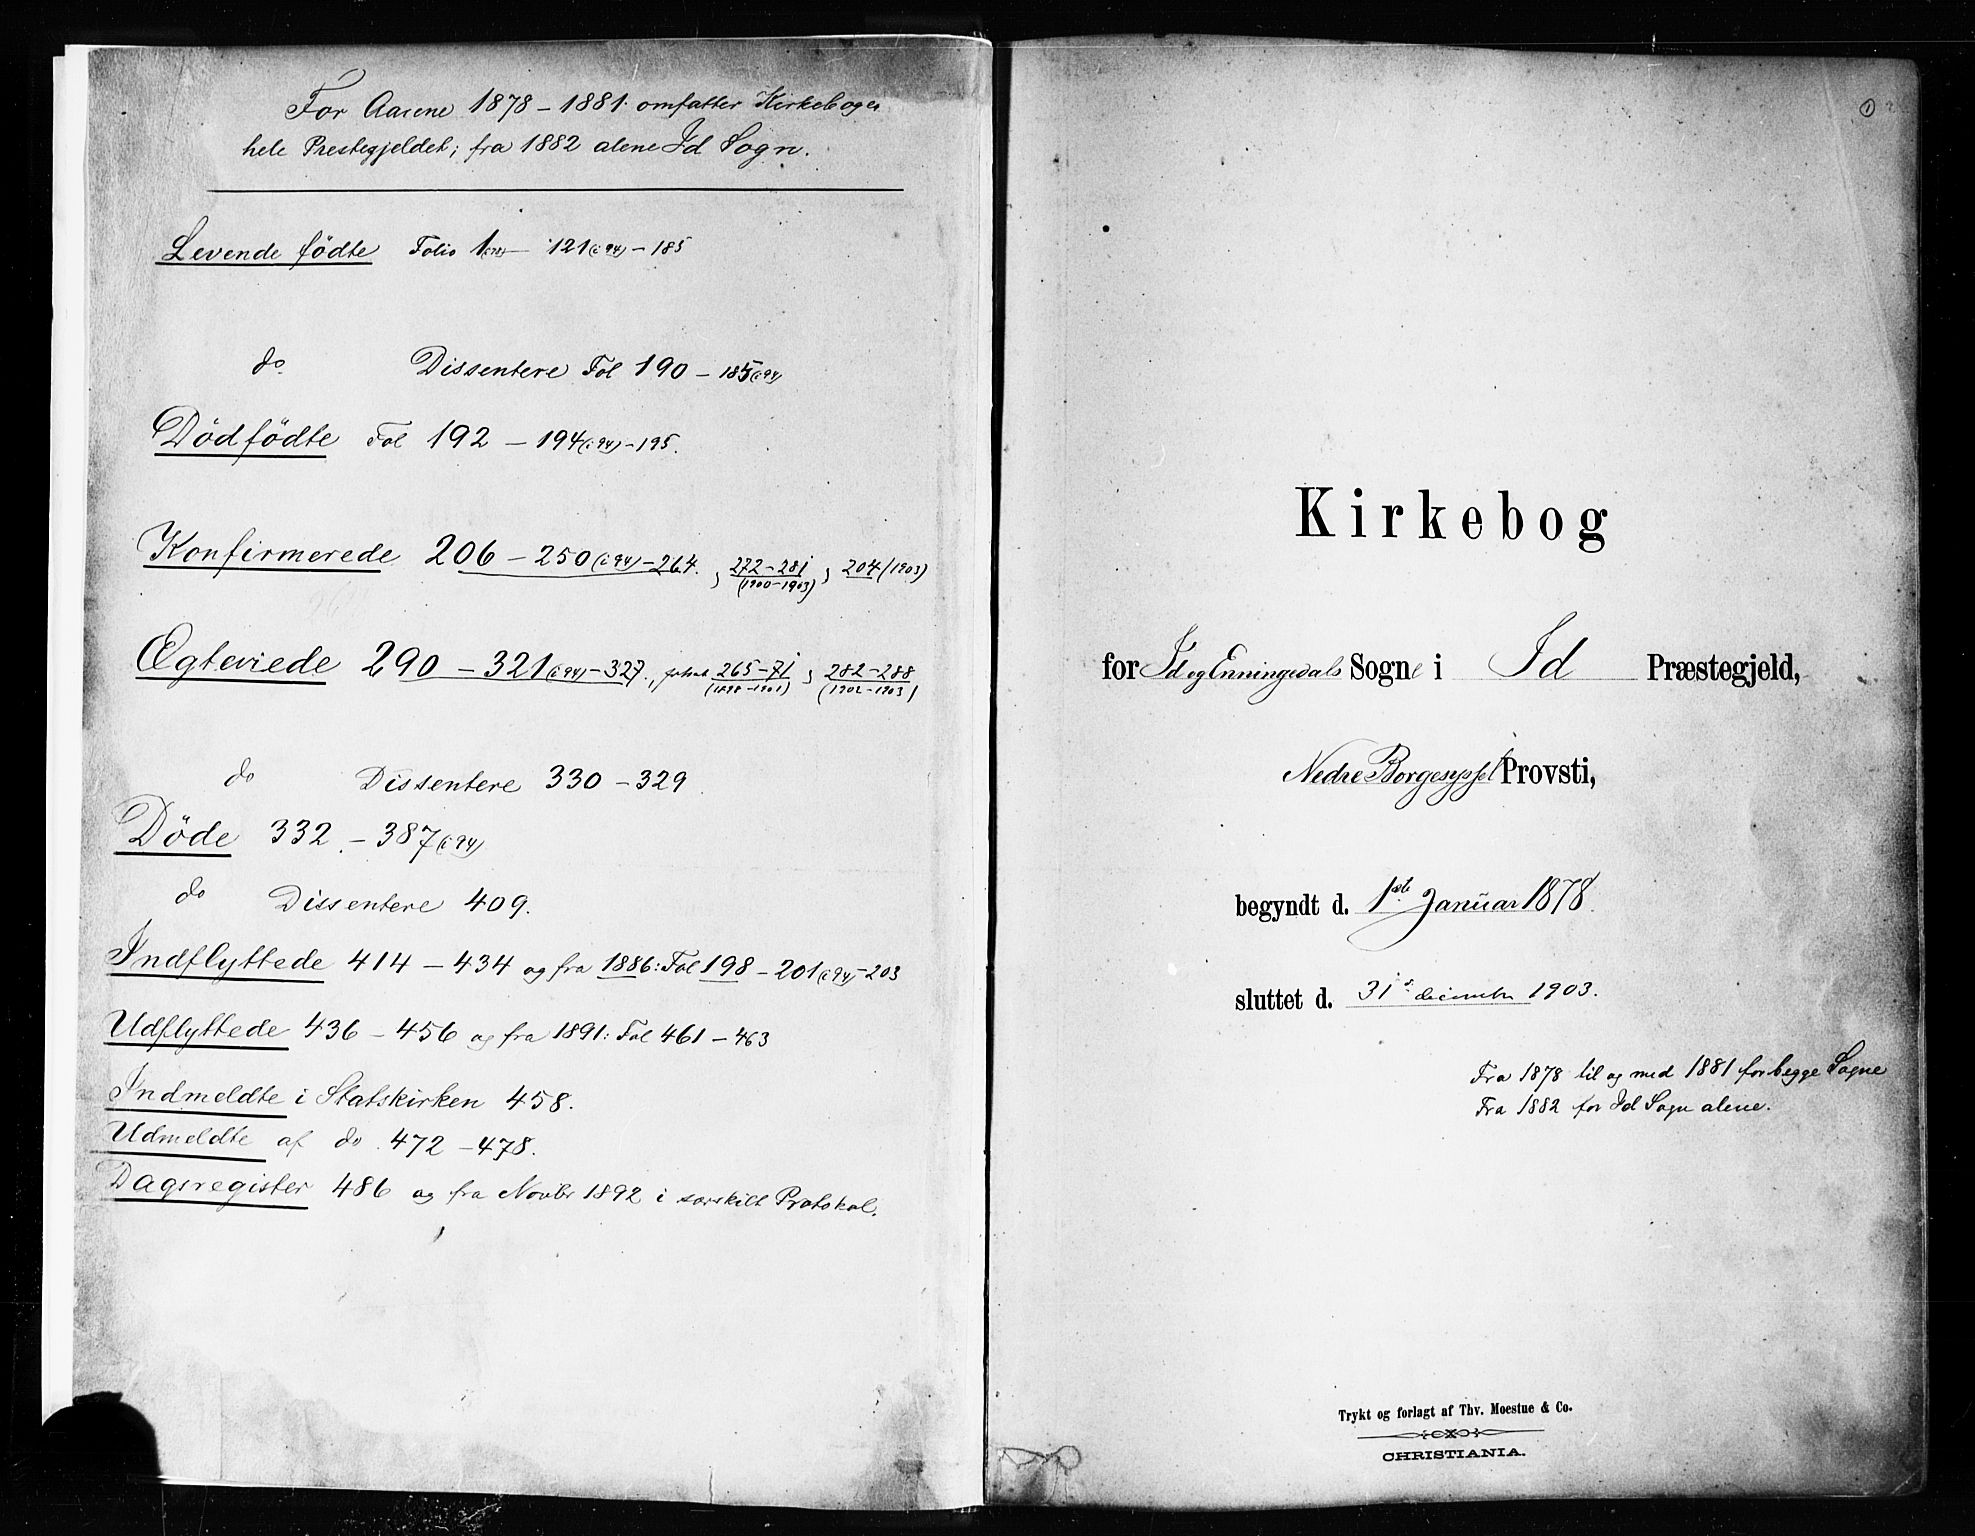 For Aarene 1878 – 1881. omfatter Kirkebogen
hele Prestegjeldet; fra 1882 alene Id Sogn.
Levende fødte Folio 1 – 121 (i 94) – 185
do Dissentere Fol 190 – 185 (i 94)
Dødfødte Fol 192 – 194 (i 94) – 195.
Konfirmerede 206 – 250 (i 94) – 264. , 272 – 281 , 204 (1903)
(1900–1903)
Ægteviede 290 – 321 (i 94) – 327. , 265–71 , 282–288
(1898–1901) (1902–1903)
do Dissentere 330 – 329
Døde 332. – 387 (i 94)
do Dissentere 409.
Indflyttede 414 – 434 og fra 1886: Fol 198 – 201 (i 94) – 203
Udflyttede 436 – 456 og fra 1891: Fol 461 – 463
Indmeldte i Statskirken 458.
Udmeldte af do. 472 – 478.
Dagsregister 486 og fra Novbr 1892 i særskilt Protokol.
1
Kirkebog
for Id og Enningedals Sogne i Id Præstegjeld,
Nedre Borgesyssel Provsti,
begyndt d. 1ste Januar 1878.
sluttet d. 31 december 1903.
Fra 1878 til og med 1881 for begge Sogne
Fra 1882 for Id Sogn alene.
Trykt og forlagt af Thv. Moestue & Co.
CHRISTIANIA.